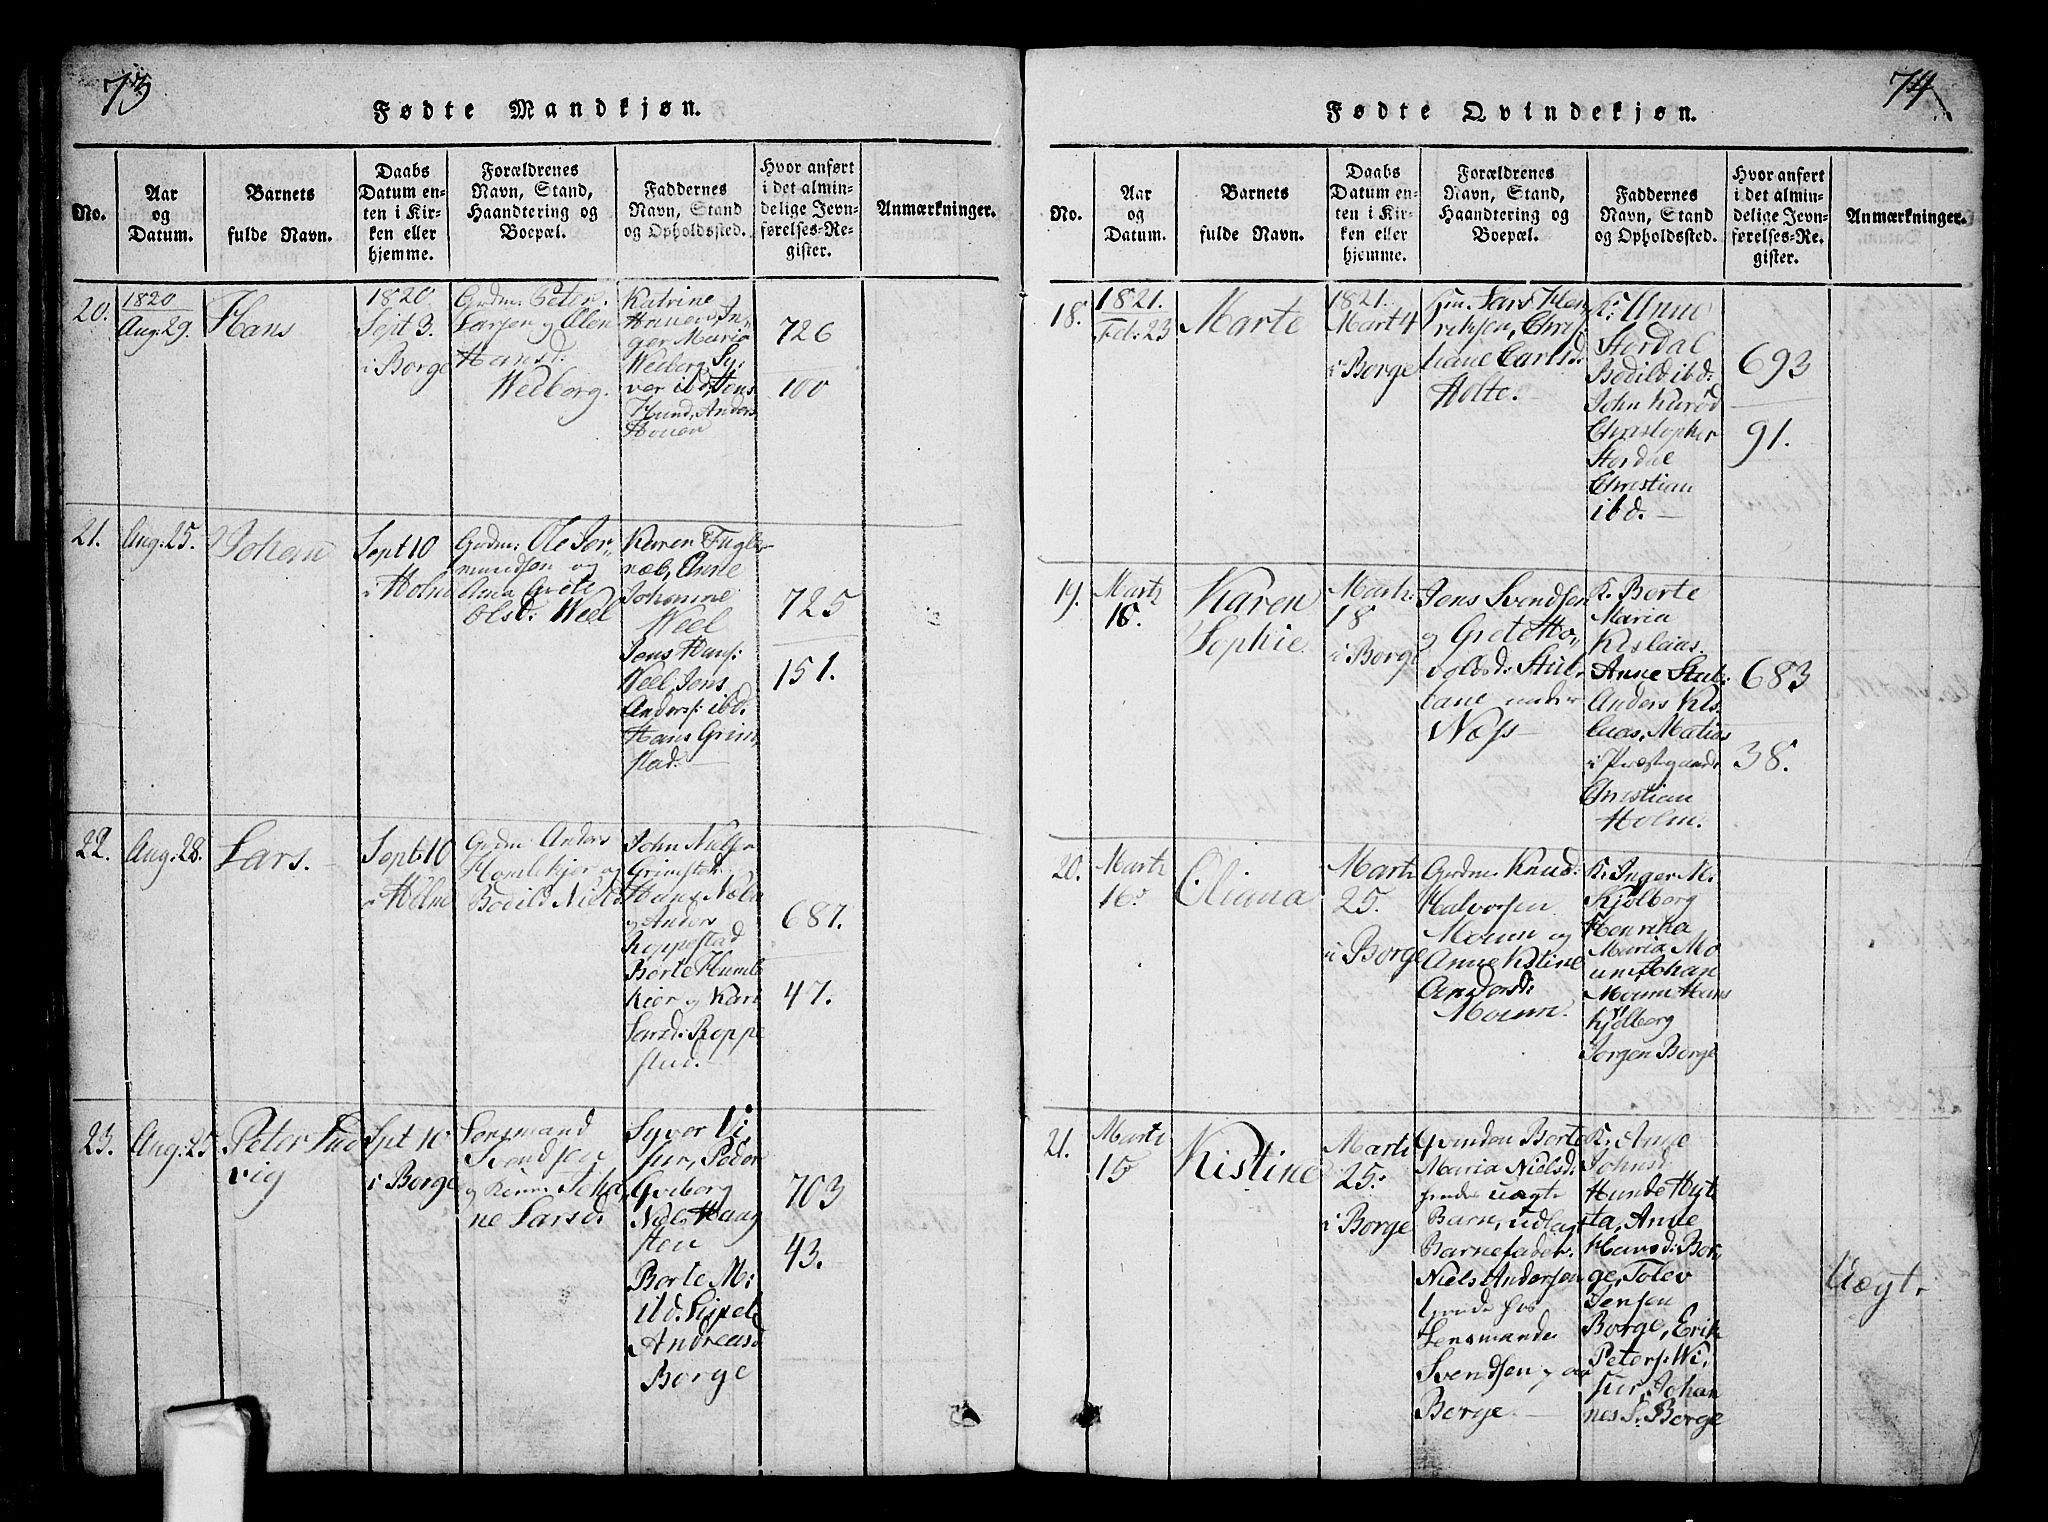 73
Fødte Mandkjøn.
No.
Aar
og
Datum.
Barnets
fulde Navn.
Daabs
Datum en-
ten i Kir-
ken eller
hjemme.
Forældrenes
Navn, Stand,
Haandtering og
Boepæl.
Faddernes
Navn, Stand
og Opholdssted.
Hvor anført
i det almin-
delige Jevn-
førelses-Re-
gister.
Anmærkninger.
20.
1820
Aug: 29.
Hans
1820.
Sept 3.
i Borge
Grdm: Peter
Larsen og Olen
Hansd.
Wedborg.
Katrine
Houen, In,
ger Maria
Wedborg, Sy,
ver ibd, Hans
Hund, Anders
Houen
726
100
21.
Aug: 25.
Johan
Sept 10
i Holm
Grdm: Ole Tor,
mundsøn og
Ana Grete
Olsd: Weel
Karen Fugle,
næb, Anne
Johanne
Weel
Jens Hans:
Weel, Jens
Anders: ibd.
Hans Grim,
stad.
725
151.
22.
Aug: 28.
Lars.
Sept: 10
i Holm
Grdm Anders
Homlekjer og
Bodild Nielsd
John Niels
Grimstad
Hans Næbn
og Anders
Roppestad
Borte Humle
kier og Kari
Larsd: Roppe
stad.
687.
47.
23.
Aug: 25
Peter Lud
vig
Spt 10
i Borge
Lensmand
Svendsen
og Kone Joha,
ne Larsd.
Syver Vi,
sur, Peder
Gveberg
Niels Haag
sten
Borte M:
ibd. Sipel
Andreasd
Borge
703
43.
74
Fødte Qvindekjøn.
No.
Aar
og
Datum.
Barnets
fulde Navn.
Daabs
Datum en-
ten i Kir-
ken eller
hjemme.
Forældrenes
Navn, Stand,
Haandtering og
Boepæl.
Faddernes
Navn, Stand
og Opholdssted.
Hvor anført
i det almin-
delige Jevn-
førelses-Re-
gister.
Anmærkninger.
18.
1821.
Feb: 23
Marte
1821.
Mart 4
i Borge
Hm. Lars Hen,
riksen, Chris,
tiane Carlsd.
Holte.
K: Anne
Stordal
Bodild ibd:
John Kurød
Christopher
Stordal
Christian
ibd.
693
91.
19.
Marti
18.
Karen
Sophie
Marti
18
i Borge
Jens Svendsen
og Grete Ho,
volsd: Stub,
lane under
Næss
K. Borte
Maria
Kislaas.
Anne Stub:
Anders Kis,
laas, Matias
i Præstegaard
Christian
Holm.
683
38.
20.
Marti
16.
Oliana
Marti
25.
i Borge
Grdm. Knud
Halvorsen
Moum og
Anne Kistine
Andersd:
Moum.
K. Inger M.
Kjølberg
Henrika
Maria Mo
um, Johan
Moum Hans
Kjølberg
Jørgen Borge
21.
Marti
15
Kistine
Marti
25:
i Borge
Qvinden Borte
Maria Nielsd:
fında uægte
Barn, udlagt
Barnefader
Niels Andersen
tienende hos
Lensmand
Svendsen paa
Borge.
K: Anne
Johnsd
Hunde Hyt
ta, Anne
Hansd: Bor,
ge, Tolev
Jensen
Borge, Erik
Peters: Wi,
sur, Johan
nes S. Borge
Uægt.